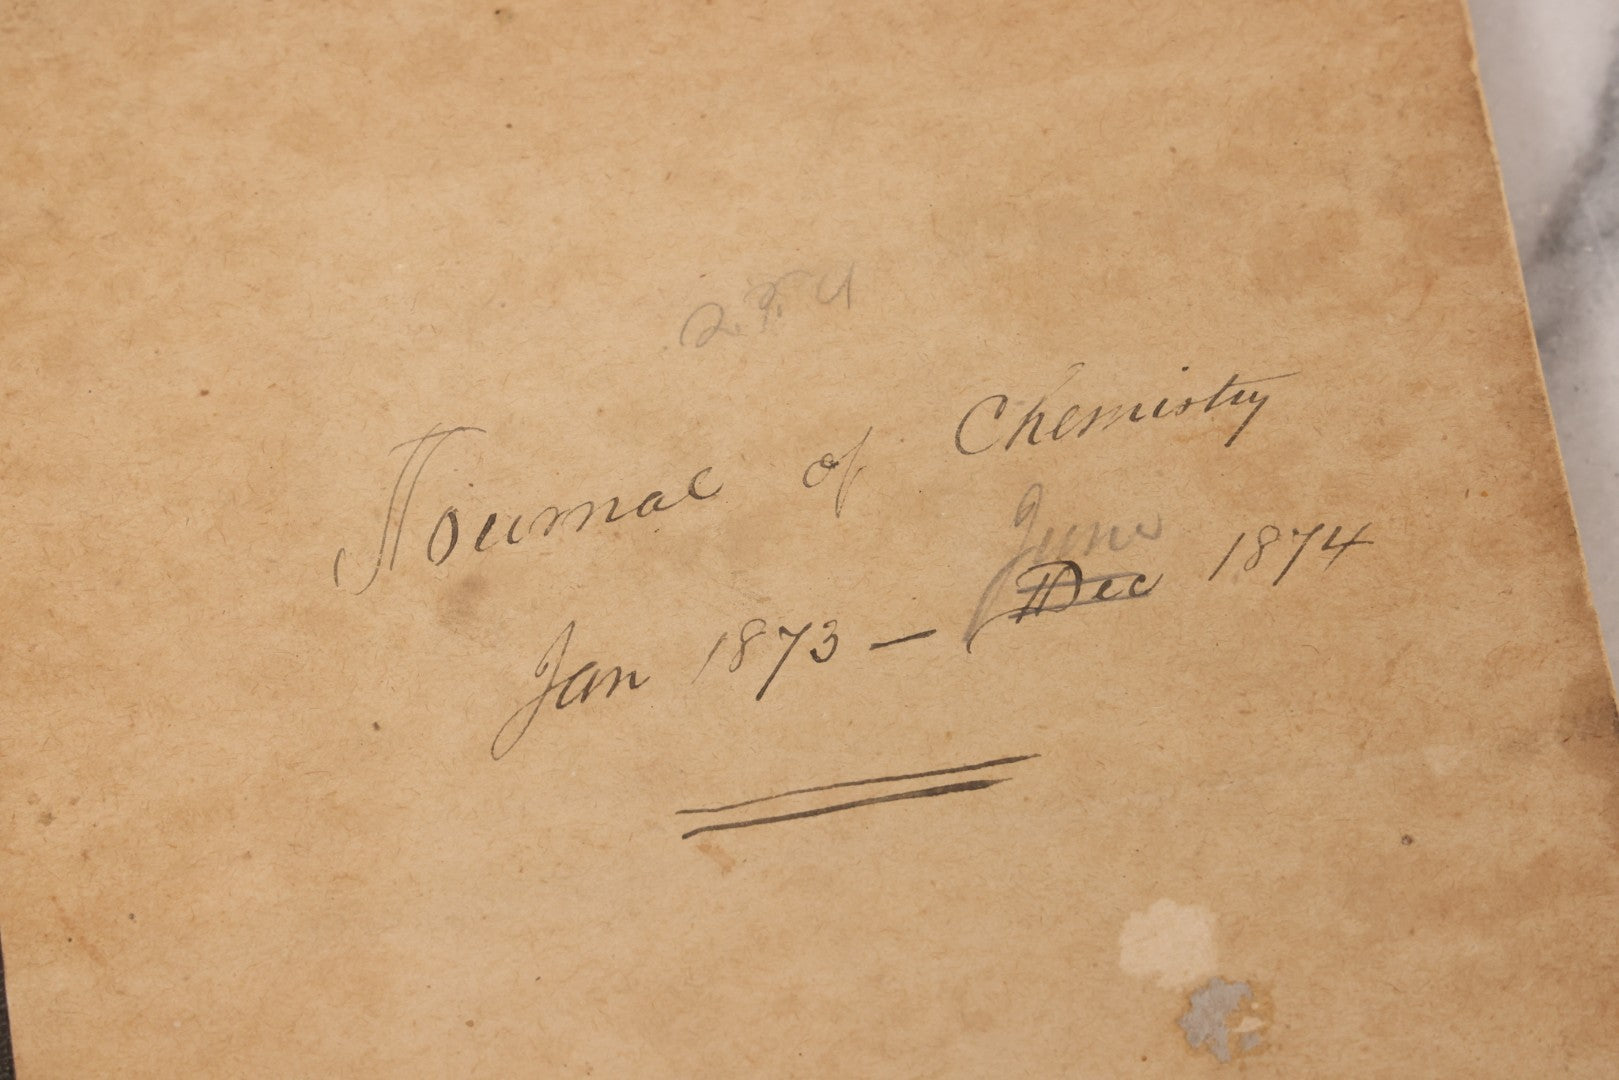 Journal of Chemistry
June
Jan 1873 — Dec 1874